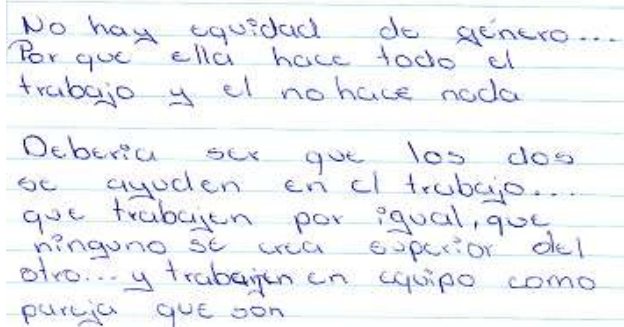 No hay equidad de género...
Por que ella hace todo el
trabajo y el no hace nada
Deberia ser que los dos
se ayuden en el trabajo...
que trabajen por igual, que
ninguno se crea superior del
otro... y trabajen en equipo como
pareja que son